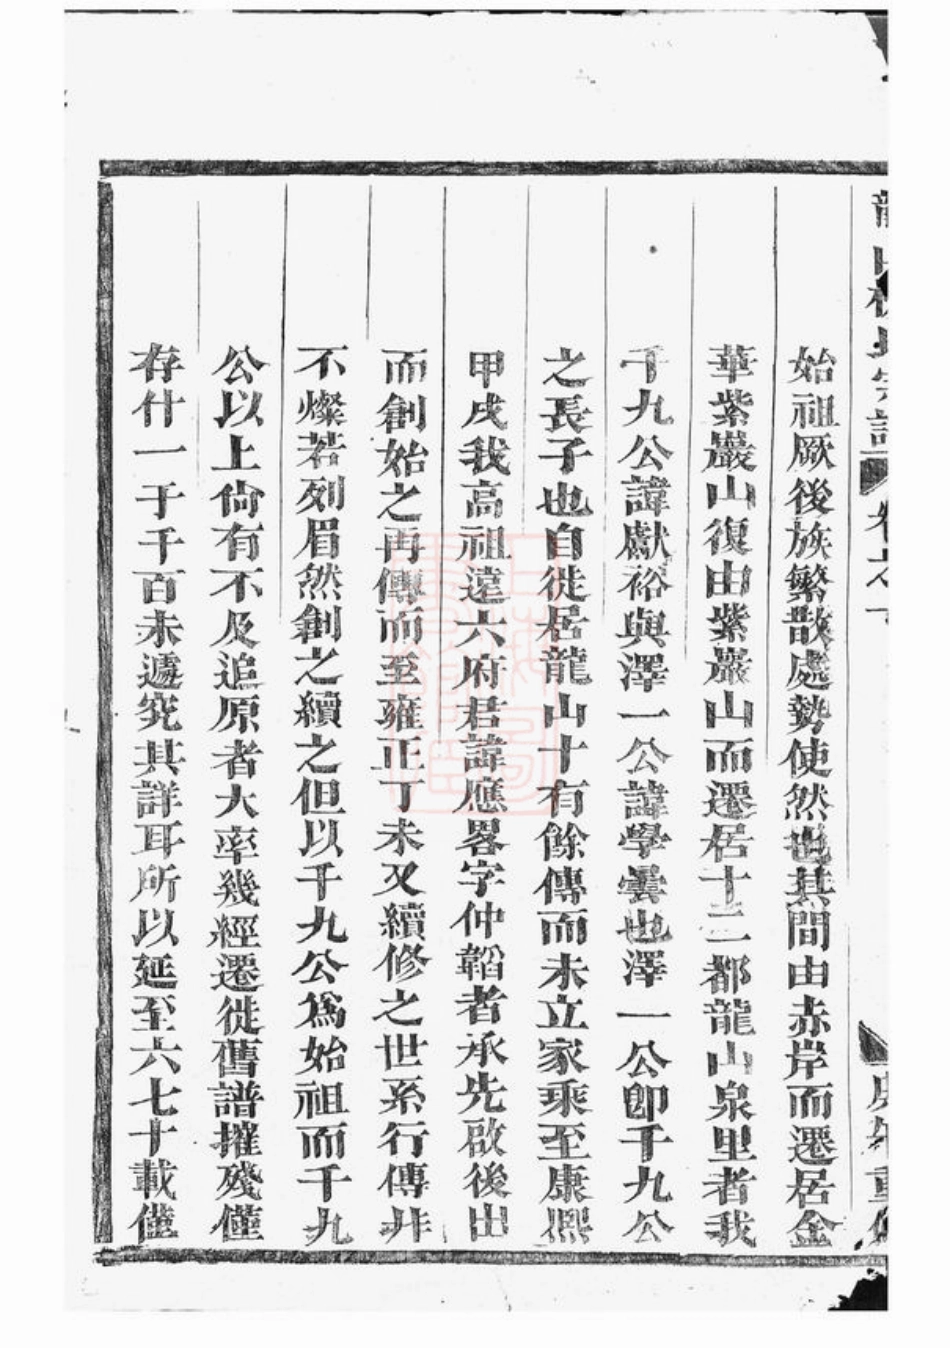 始祖厥後族繁散處勢使然也其間由赤岸而遷居金
華紫巖山復由紫巖山而遷居十二都龍山泉里者我
千九公諱獻裕與澤一公諱學曇也澤一公卽千九公
之長子也自徙居龍山十有餘傳而未立家乘至康熙
甲戌我高祖遠六府君諱應畧字仲韜者承先啟後出
而創始之再傳而至雍正丁未又續修之世系行傳非
不燦若列眉然創之續之但以千九公為始祖而千九
公以上尙有不及追原者大率幾經遷徙舊譜摧殘僅
存什一于千百未遽究其詳耳所以延至六七十載僅